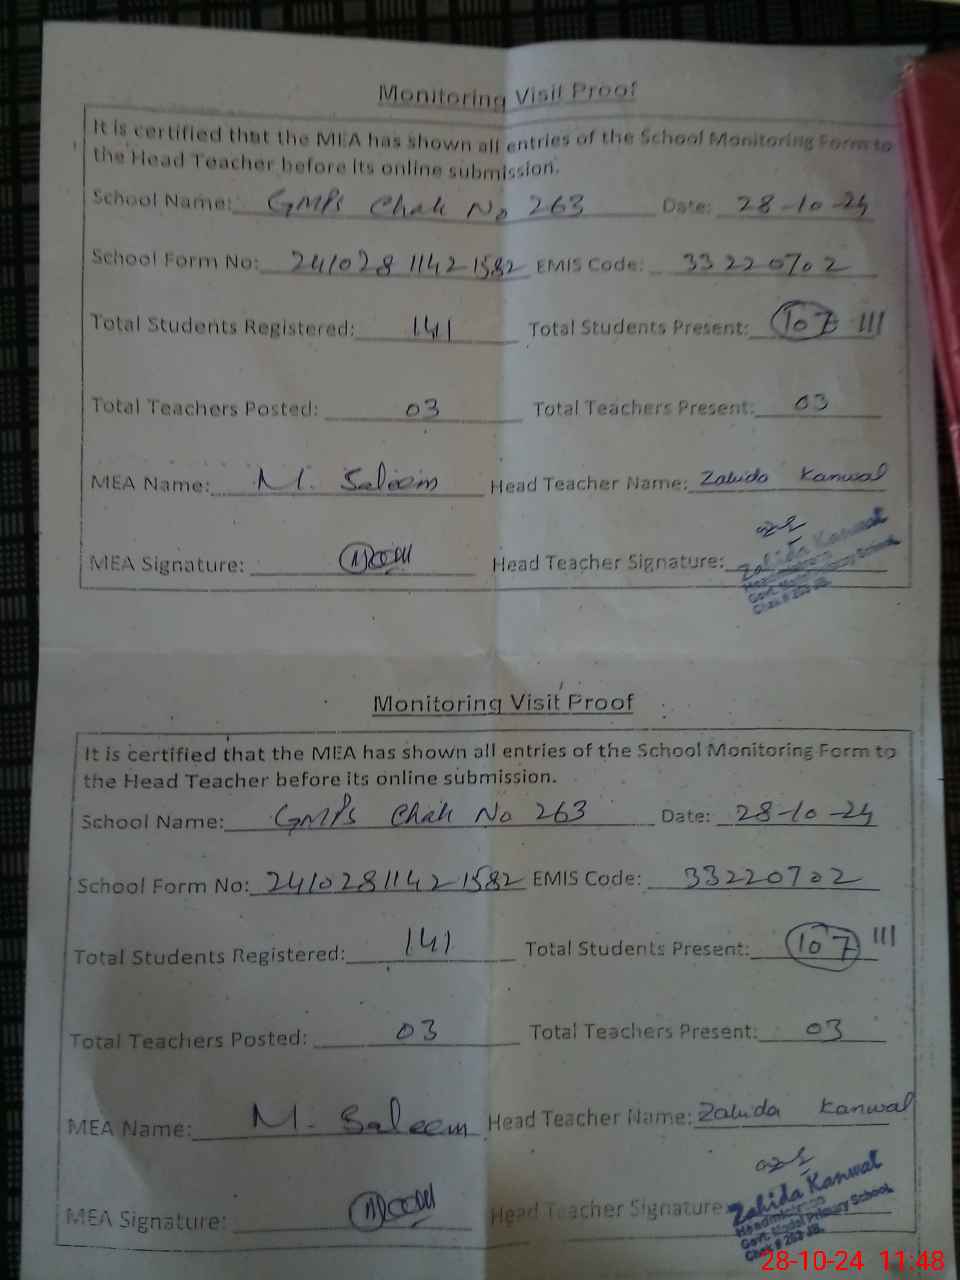 Monitoring Visit Proof
It is certified that the MEA has shown all entries of the School Monitoring Form to
the Head Teacher before its online submission.
School Name: GMPS Chak No 263 Date: 28-10-24
School Form No: 2410281142 1582 EMIS Code: 33220702
Total Students Registered: 141 Total Students Present: 107 111
Total Teachers Posted: 03 Total Teachers Present: 03
MEA Name: M. Saleem Head Teacher Name: Zahida Kanwal
MEA Signature: Head Teacher Signature:
Zahida Kanwal
Headmistress
Govt. Model Primary School
Chak # 263 JB.
Monitoring Visit Proof
It is certified that the MEA has shown all entries of the School Monitoring Form to
the Head Teacher before its online submission.
School Name: GMPS Chak No 263 Date: 28-10-24
School Form No: 2410281142 1582 EMIS Code: 33220702
Total Students Registered: 141 Total Students Present: 107 111
Total Teachers Posted: 03 Total Teachers Present: 03
MEA Name: M. Saleem Head Teacher Name: Zahida Kanwal
MEA Signature: Head Teacher Signature:
Zahida Kanwal
Headmistress
Govt. Model Primary School
Chak # 263 JB.
28-10-24 11:48